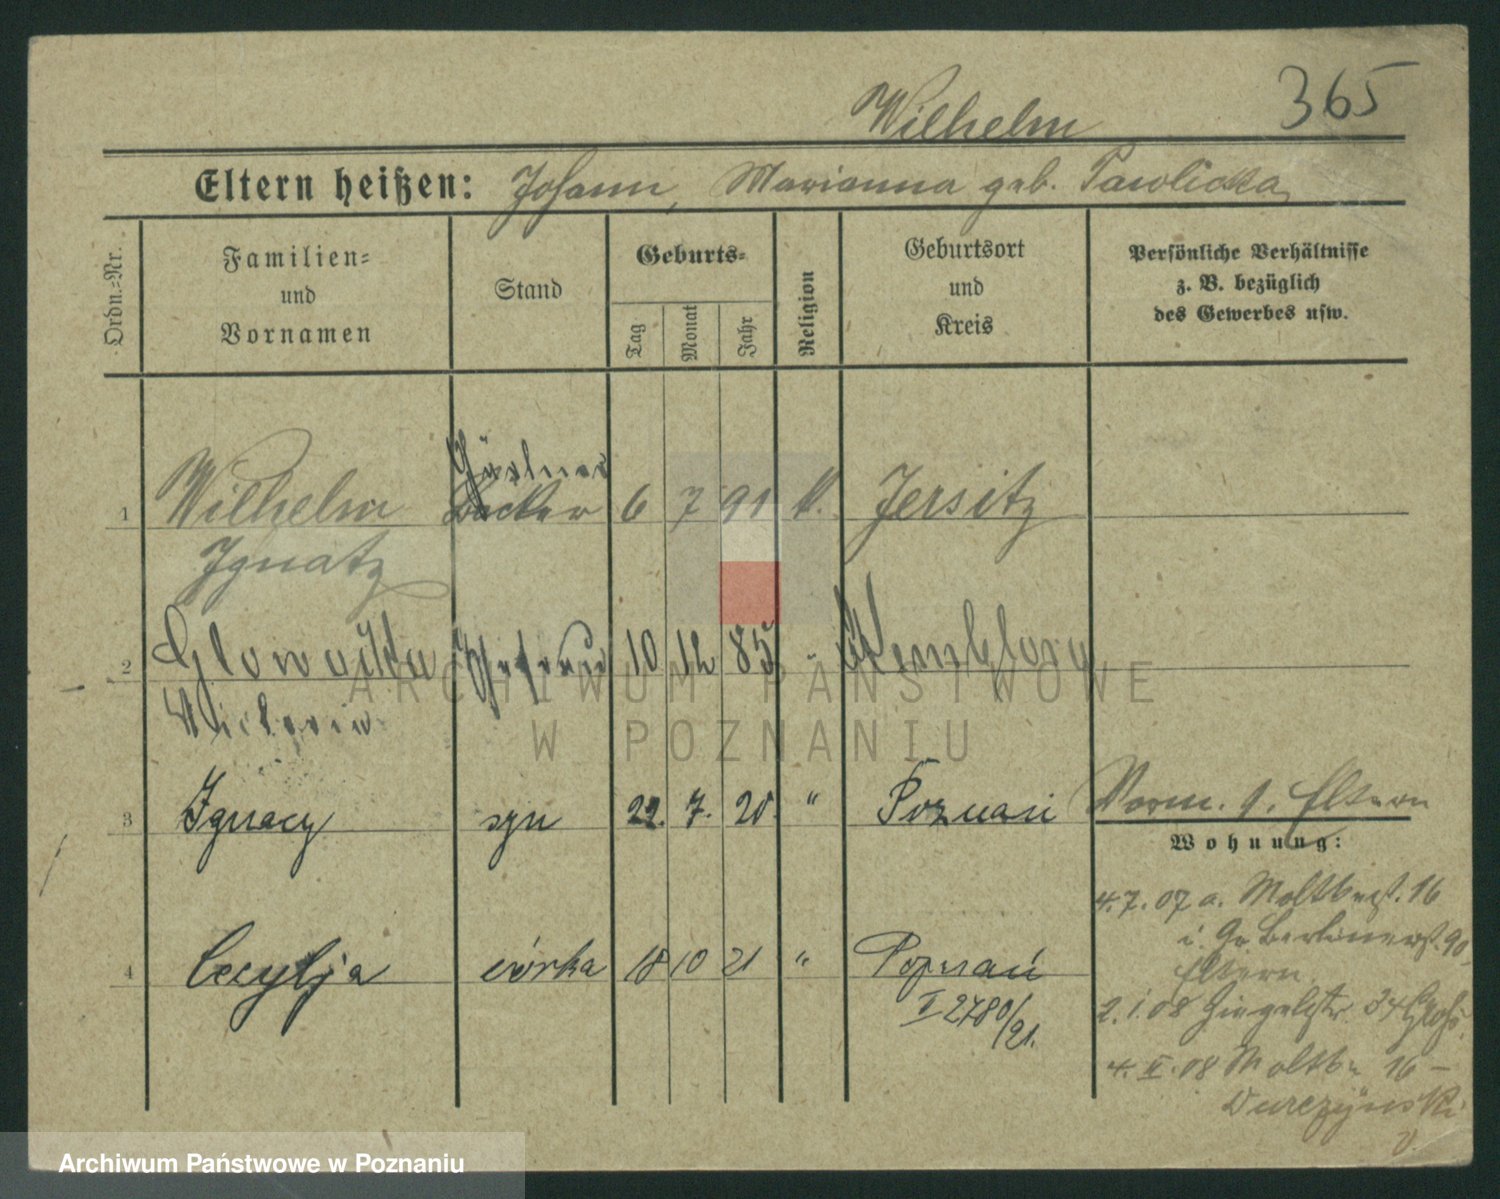 365
Wilhelm
Eltern heißen: Johann, Marianna geb. Pawlicka
Ordn.=Nr.
Familien=
und
Vornamen
Stand
Geburts=
Tag
Monat
Jahr
Religion
Geburtsort
und
Kreis
Persönliche Verhältnisse
z. B. bezüglich
des Gewerbes usw.
1 Wilhelm Bäcker 6 7 91 k. Jersitz
Ignatz
2 Glowacka Ehefrau 10 12 85 "
Wictoria
3 Ignacy syn 22. 7. 20. " Poznań
Vorm. q. Eltern
Wohnung:
4.7.07 a. Moltkestr. 16
i. Gr Berlinerst. 90
Eltern
4 Cecylja córka 18 10 21 " Poznań
I 2780/21.
2.1.08 Ziegelstr. 34
4.II.08 Moltke 16 –
ARCHIWUM PAŃSTWOWE
W POZNANIU
Archiwum Państwowe w Poznaniu